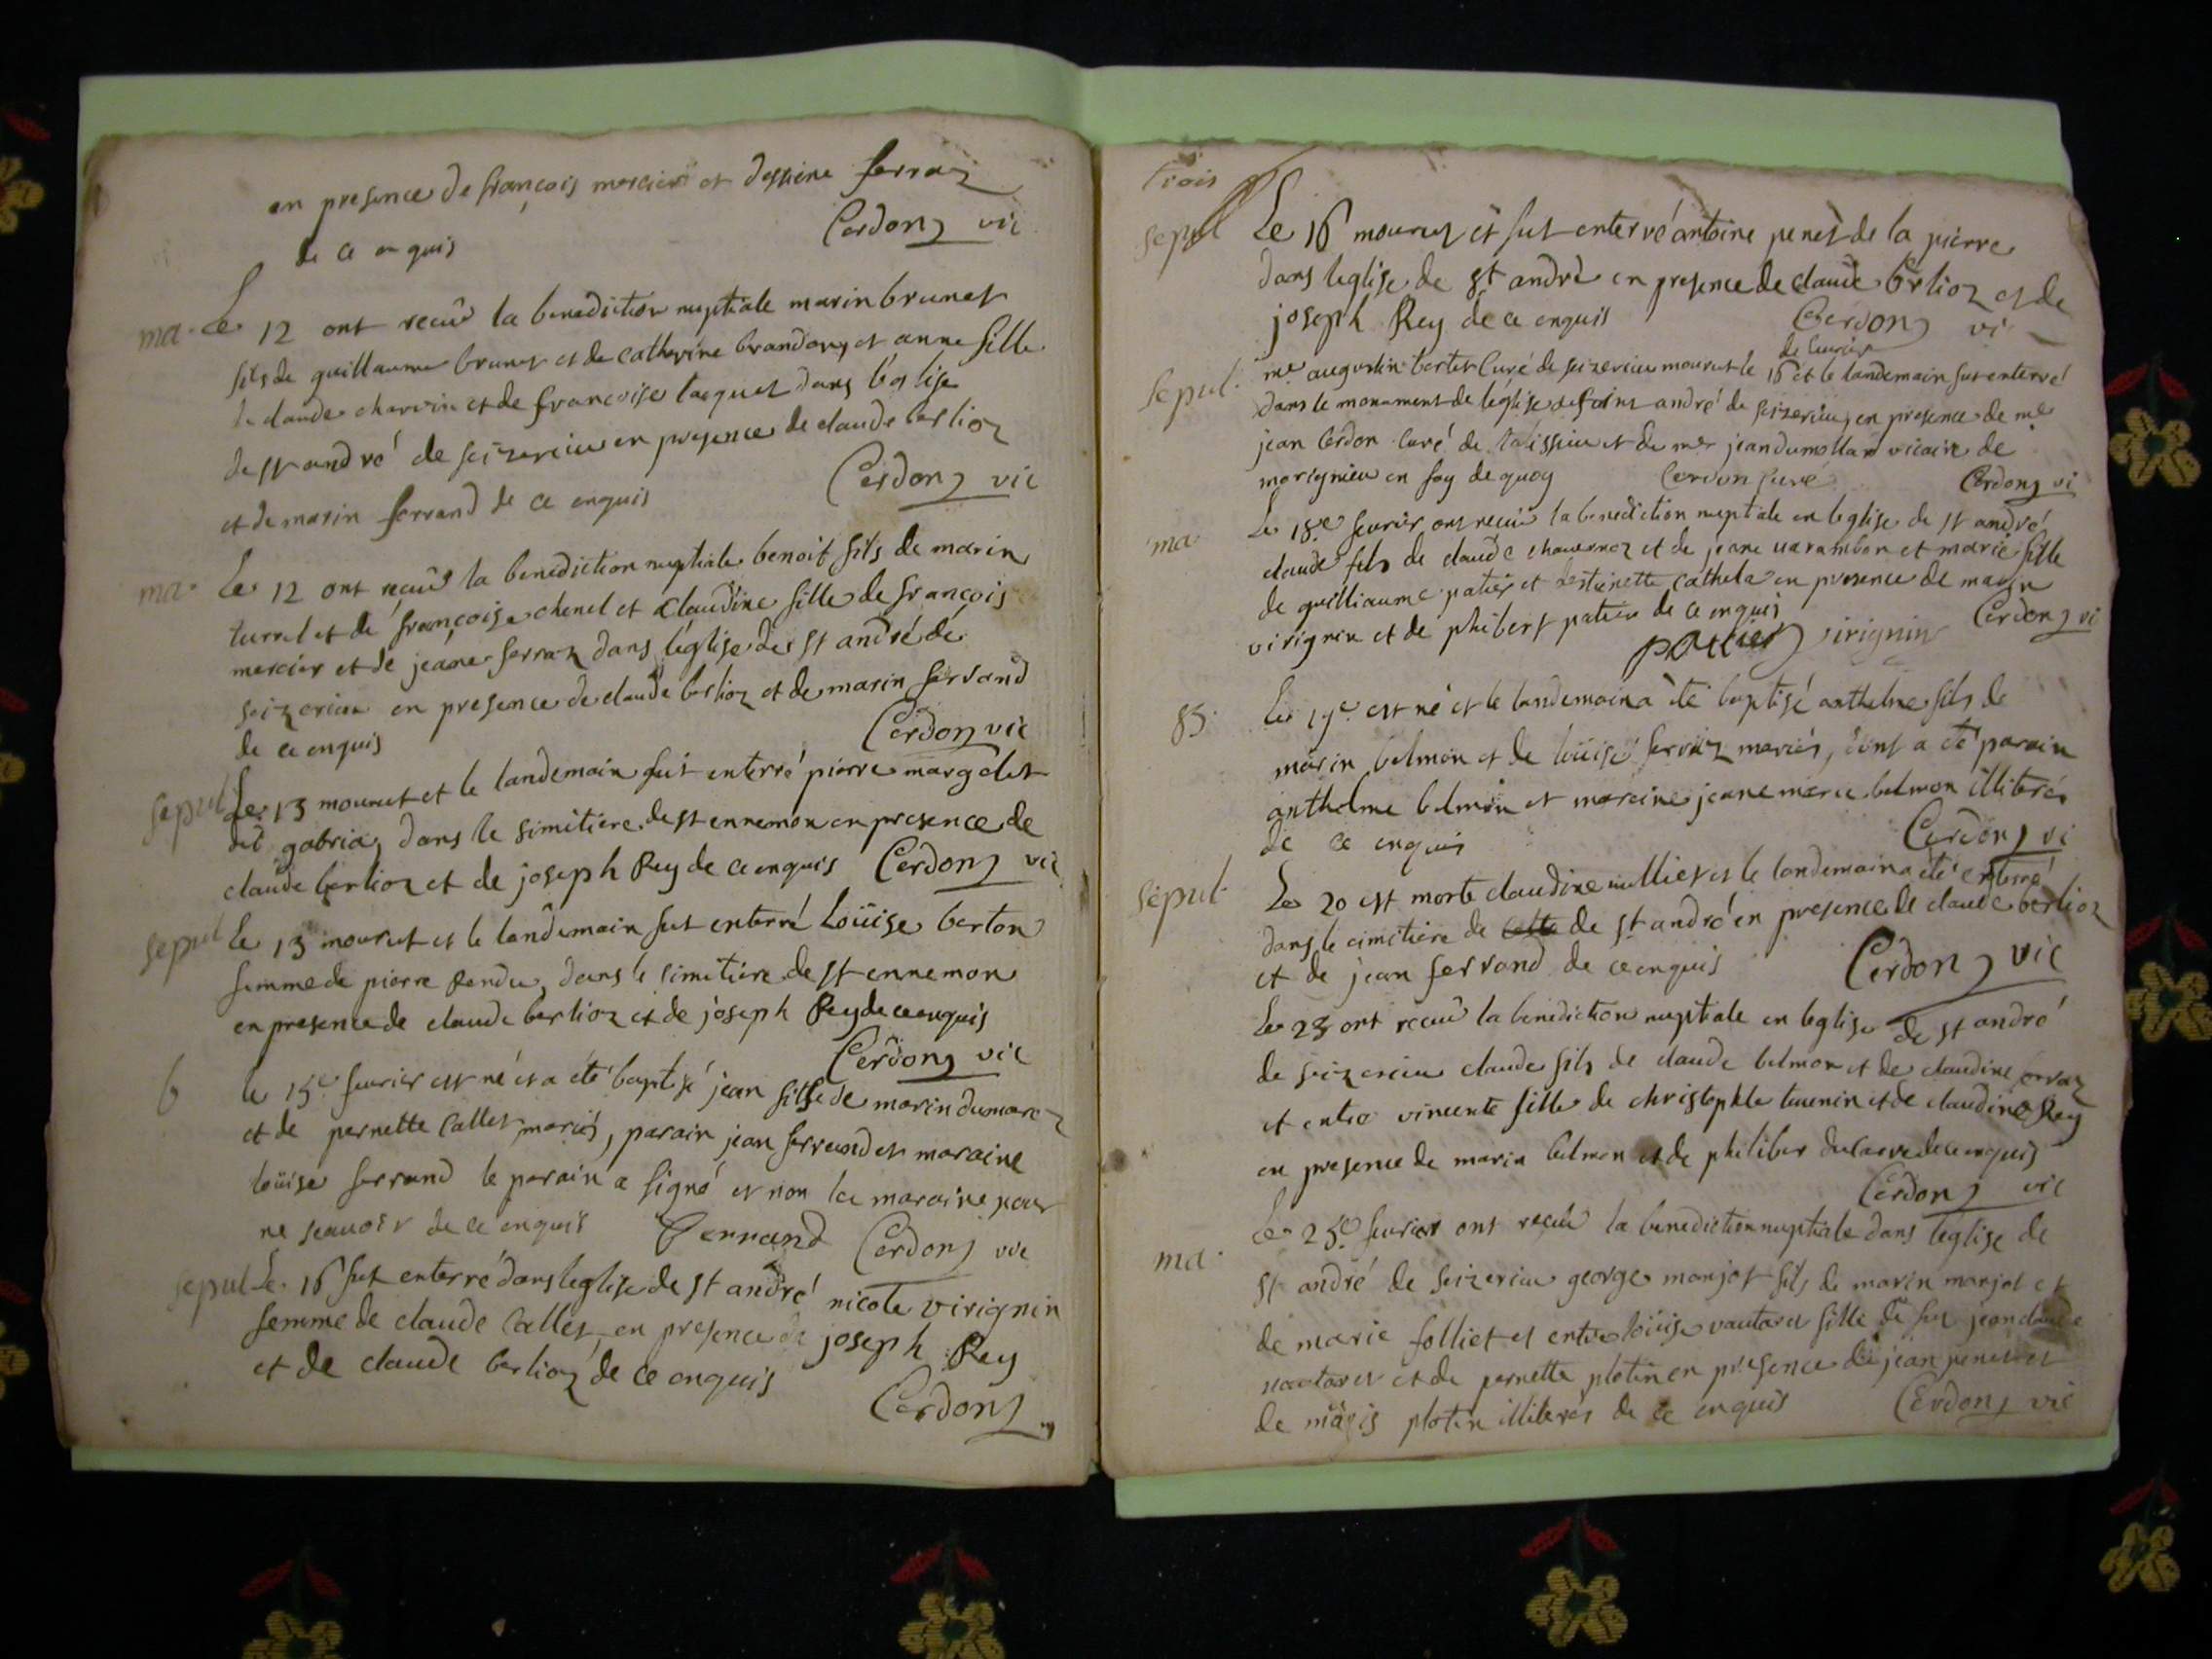 en presence de françois mercier et dessine ferraz
de ce enquis Cerdon vic
ma. Le 12 ont recû la benediction nuptiale marin brunet
fils de guillaume brunet et de catherine brandon, et anne fille
de claude charvin et de francoise jaquet dans l'eglise
de st andré de seizerieu en presence de claude berlioz
et de marin ferrand de ce enquis Cerdon vic
ma. Le 12 ont recû la benediction nuptiale benoit fils de marin
turrel et de françoise chenel et claudine fille de françois
mercier et de jeane ferraz dans l'église de st andré de
seizerieu en presence de claude berlioz et de marin ferrand
de ce enquis Cerdon vic
sepul Le 13 mourut et le landemain fut enterré pierre margelet
dit gabria, dans le simitiere de st ennemon en presence de
claude berlioz et de joseph Rey de ce enquis Cerdon vic
sepul Le 13 mourut et le landemain fut enterré Loüise berton
femme de pierre Rendu, dans le simitiere de st ennemon
en presence de claude berlioz et de joseph Rey de ce enquis
Cerdon vic
b le 15e feurier est né et a été baptisé jean fils de marin dumarez
et de pernette Callet mariés, parain jean ferrand et maraine
loüise ferrand le parain a signé et non la maraine pour
ne scauoir de ce enquis ferrand Cerdon vic
sepul Le 16 fut enterré dans leglise de st andré nicole virignin
femme de claude Callet en presence de joseph Rey
et de claude berlioz de ce enquis
Cerdon
trois
sepul Le 16 mourut et fut enterré antoine penet de la pierre
dans leglise de st andré en presence de claude berlioz et de
joseph Rey de ce enquis Cerdon vi
de feurier
sepul. mre augustin bertet Curé de seizerieu mourut le 16 et le landemain fut enterré
dans le monument de l'église de saint andré de seizerieu, en presence de me
jean Cerdon Curé de talissieu et de mre jean dumollard vicaire de
marignieu en foy de quoy Cerdon Curé Cerdon vi
ma Le 18e feurier, ont recû la benediction nuptiale en leglise de st andré
claude fils de claude chauernoz et de jeane varambon et marie fille
de guilliaume patier et destienette Cathela en presence de marin
virignin et de philibert patier de ce enquis Cerdon vi
patier virignin
85. Le 19e est né et le landemain a été baptisé anthelme fils de
marin belmon et de loüise ferraz mariés, dont a été parain
anthelme belmon et maraine jeane marie belmon illiterés
de ce enquis Cerdon vi
sepul Le 20 est morte claudine mulliet et le landemain a été enterré
dans le cimitiere de cette de st andré en presence de claude berlioz
et de jean ferrand de ce enquis Cerdon vic
Le 23 ont recû la benediction nuptiale en leglise de st andré
de seizerieu claude fils de claude belmon et de claudine ferraz
et entre vincente fille de christophle teuenin et de claudine Rey
en presence de marin belmon et de philiber de ce enquis
Cerdon vic
ma. Le 25e feurier ont recû la benediction nuptiale dans leglise de
st andré de seizerieu george manjot fils de marin manjot et
de marie folliet et entre loüise vautaret fille de feu jean claude
vautaret et de pernette plotin en presence de jean penet et
de maris plotin illiterés de ce enquis Cerdon vic